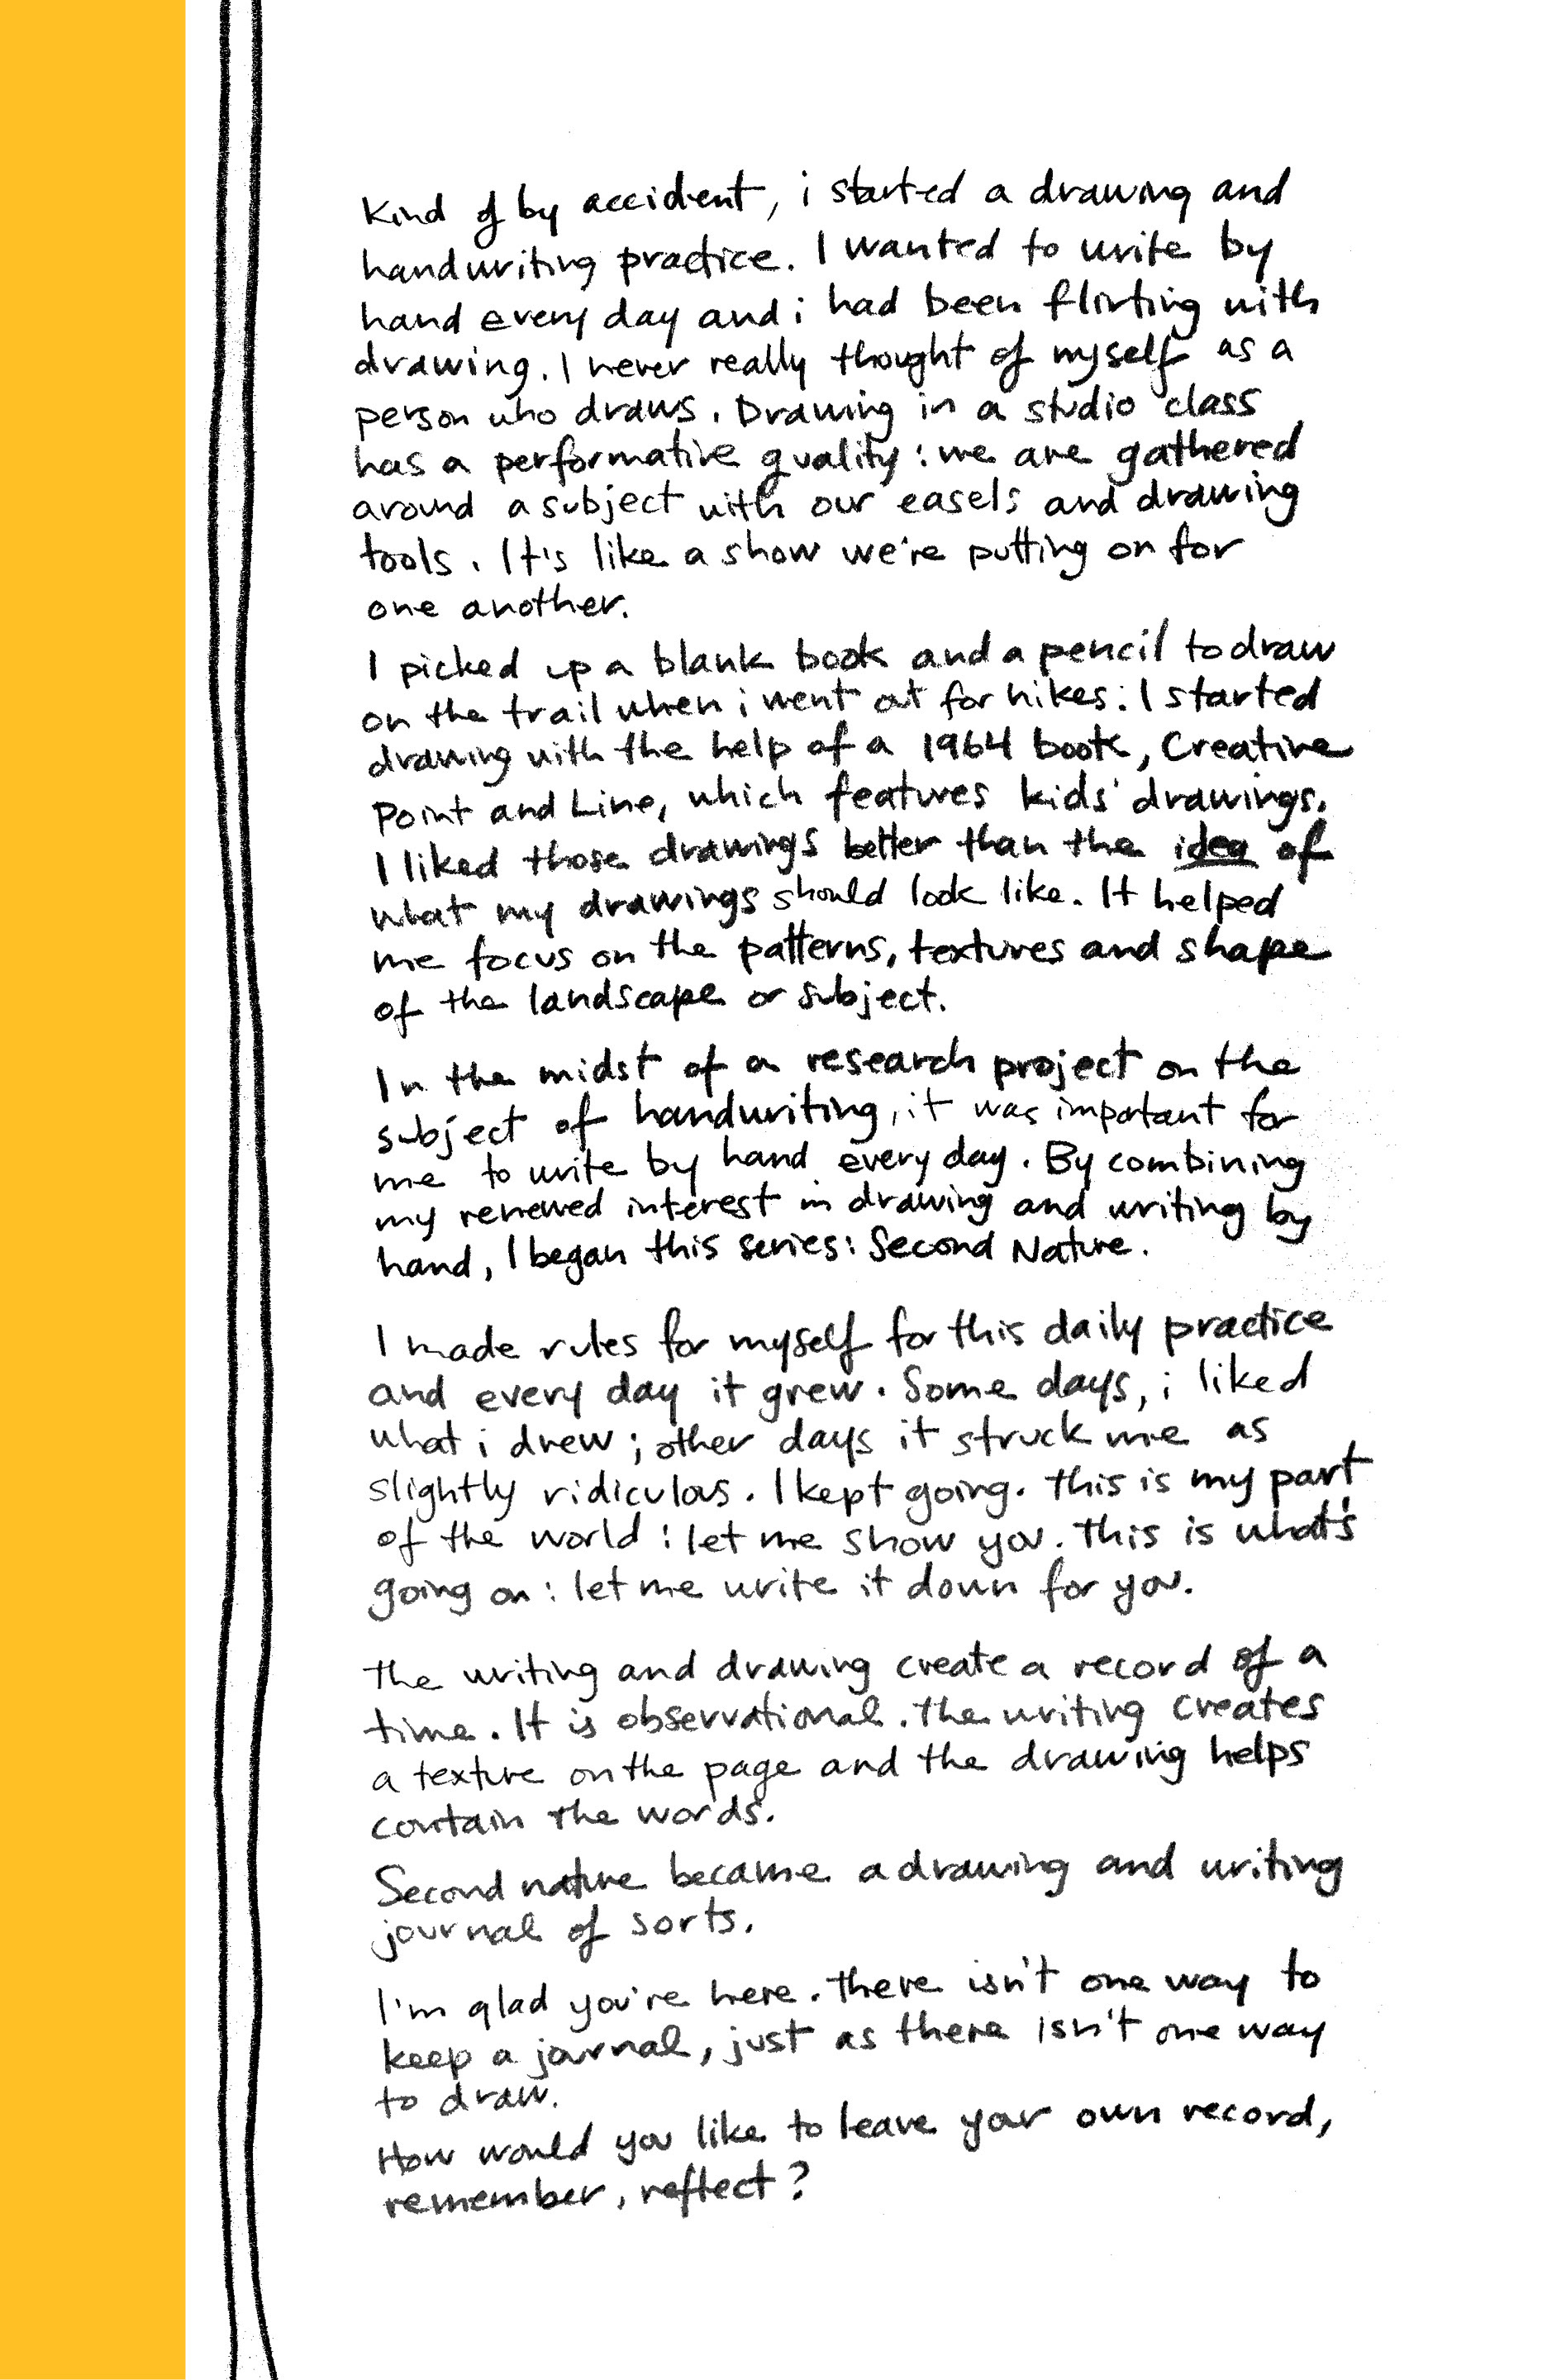 Kind of by accident, i started a drawing and
handwriting practice. I wanted to write by
hand every day and i had been flirting with
drawing. I never really thought of myself as a
person who draws. Drawing in a studio class
has a performative quality: we are gathered
around a subject with our easels and drawing
tools. It's like a show we're putting on for
one another.
I picked up a blank book and a pencil to draw
on the trail when i went out for hikes: I started
drawing with the help of a 1964 book, Creative
Point and Line, which features kids' drawings.
I liked those drawings better than the idea of
what my drawings should look like. It helped
me focus on the patterns, textures and shape
of the landscape or subject.
In the midst of a research project on the
subject of handwriting, it was important for
me to write by hand every day. By combining
my renewed interest in drawing and writing by
hand, I began this series: Second Nature.
I made rules for myself for this daily practice
and every day it grew. Some days, i liked
what i drew; other days it struck me as
slightly ridiculous. I kept going. This is my part
of the world: let me show you. This is what's
going on: let me write it down for you.
The writing and drawing create a record of a
time. It is observational. The writing creates
a texture on the page and the drawing helps
contain the words.
Second nature became a drawing and writing
journal of sorts.
I'm glad you're here. There isn't one way to
keep a journal, just as there isn't one way
to draw.
How would you like to leave your own record,
remember, reflect?